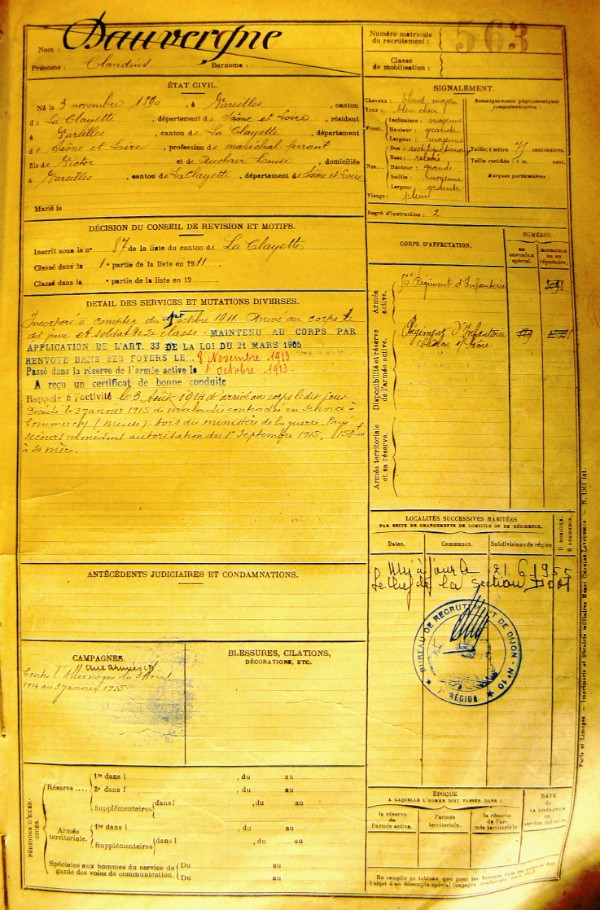 Nom : Dauvergne
Prénoms : Claudius Surnoms :
Numéro matricule du recrutement : 563
Classe de mobilisation :
ÉTAT CIVIL.
Né le 3 novembre 1890, à Vareilles, canton
de La Clayette, département de Saône et Loire, résidant
à Vareilles, canton de La Clayette, département
de Saône et Loire, profession de maréchal ferrant
fils de Victor et de
à Vareilles, canton de La Clayette, département de Saône et Loire
domiciliés
Marié le
DÉCISION DU CONSEIL DE REVISION ET MOTIFS.
Inscrit sous le n° 87 de la liste du canton de La Clayette
Classé dans la 1e partie de la liste en 1911
Classé dans la partie de la liste en 19
DÉTAIL DES SERVICES ET MUTATIONS DIVERSES.
Incorporé à compter du octobre 1911. Arrivé au corps le
dit jour et soldat de 2e classe. MAINTENU AU CORPS PAR
APPLICATION DE L'ART. 33 DE LA LOI DU 21 MARS 1905
RENVOYÉ DANS SES FOYERS LE 8 Novembre 1913
Passé dans la réserve de l'armée active le 1 octobre 1913.
A reçu un certificat de bonne conduite
Rappelé à l'activité le 3 Août 1914 et arrivé au corps le dit jour
Décédé le 3 janvier 1915 de maladie contractée en service à
Commercy (Meuse). Avis du ministère de la guerre. Payé
secours immédiat autorisation du 1er Septembre 1915, 150 f
à sa mère.
ANTÉCÉDENTS JUDICIAIRES ET CONDAMNATIONS.
CAMPAGNES.
aux armées
Contre l'Allemagne du 3 Août
1914 au 3 janvier 1915
BLESSURES, CITATIONS,
DÉCORATIONS, ETC.
PÉRIODES D'EXERCICES.
Réserve
1re dans l , du au
2e dans l , du au
Supplémentaires dans l , du au
Armée territoriale.
1re dans l , du au
Supplémentaires dans l , du au
Spéciales aux hommes du service de
garde des voies de communication.
Du au
Du au
SIGNALEMENT.
Cheveux : blond moyen
Yeux : bleu clair
Front.
Inclinaison : moyenne
Hauteur : grande
Largeur : moyenne
Nez
Dos : rectiligne
Base : relevée
Hauteur : grande
Saillie : moyenne
Largeur : grande
Visage : plein
Renseignements physionomiques
complémentaires :
Taille : 1 mètre 75 cent.
Taille rectifiée : 1 m. cent.
Marques particulières :
Degré d'instruction : 2
CORPS D'AFFECTATION.
NUMÉROS
DU CONTRÔLE spécial.
MATRICULE OU AU répertoire.
Armée active.
Régiment d'Infanterie
Disponibilité et réserve de l'armée active.
Régiment d'Infanterie
Armée territoriale et sa réserve.
LOCALITÉS SUCCESSIVES HABITÉES
PAR SUITE DE CHANGEMENTS DE DOMICILE OU DE RÉSIDENCE.
Dates. Communes. Subdivisions de région
D. DOMICILE.
R. RÉSIDENCE.
Mis à jour le 21.6.1955
Le chef de la section
BUREAU DE RECRUTEMENT DE DIJON - N° 10
RÉGION
ÉPOQUE
À LAQUELLE L'HOMME DOIT PASSER DANS :
la réserve de l'armée active.
l'armée territoriale.
la réserve de l'armée territoriale
DATE